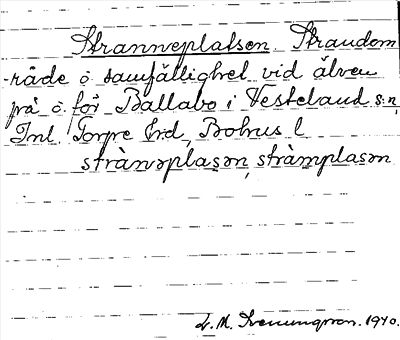 Stranneplatsen Strandom
-råde o samfällighet vid älven
på ö. för Ballabo i Vesteland s:n
Inl. Torpe frd, Bohus l
strànəplasən, stràmplasən
L. M. Svenungsson. 1940.